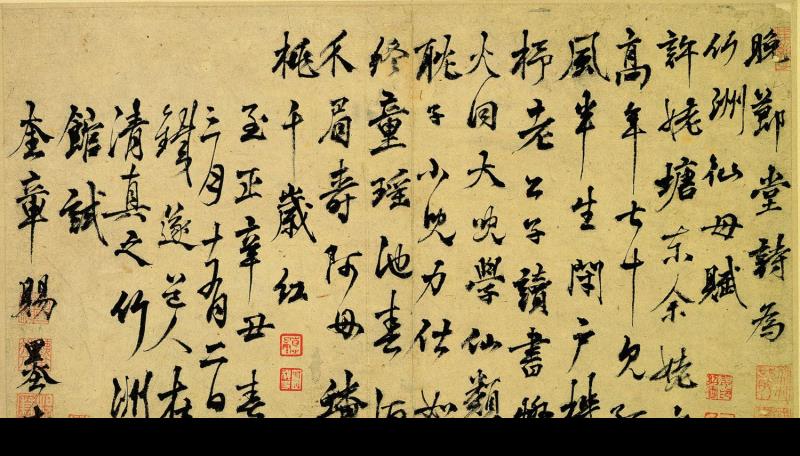 晚節堂詩為
竹洲仙母賦
許姥塘東余姥
高年七十兒
風半生閉戶機
杼老公子讀書
火同大兒學仙類
耽子小兒力仕如
終童瑶池春
禾眉壽阿母
桃千歲紅
至正辛丑春
三月十又一月二日
鐵篴道人在
清真之竹洲
館試
奎章賜墨